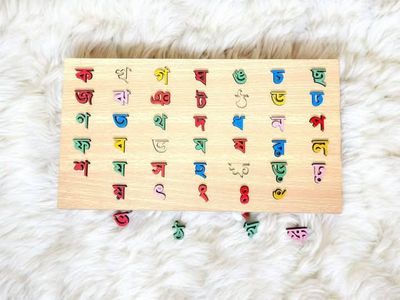 ক খ গ ঘ ঙ চ ছ
জ ঝ ঞ ট ঠ ড ঢ
ণ ত থ দ ধ ন প
ফ ব ভ ম য র ল
শ ষ স হ ক্ষ ড় ঢ়
য় ৎ ং ঃ ঁ
ভ ঠ খ ক্ষ